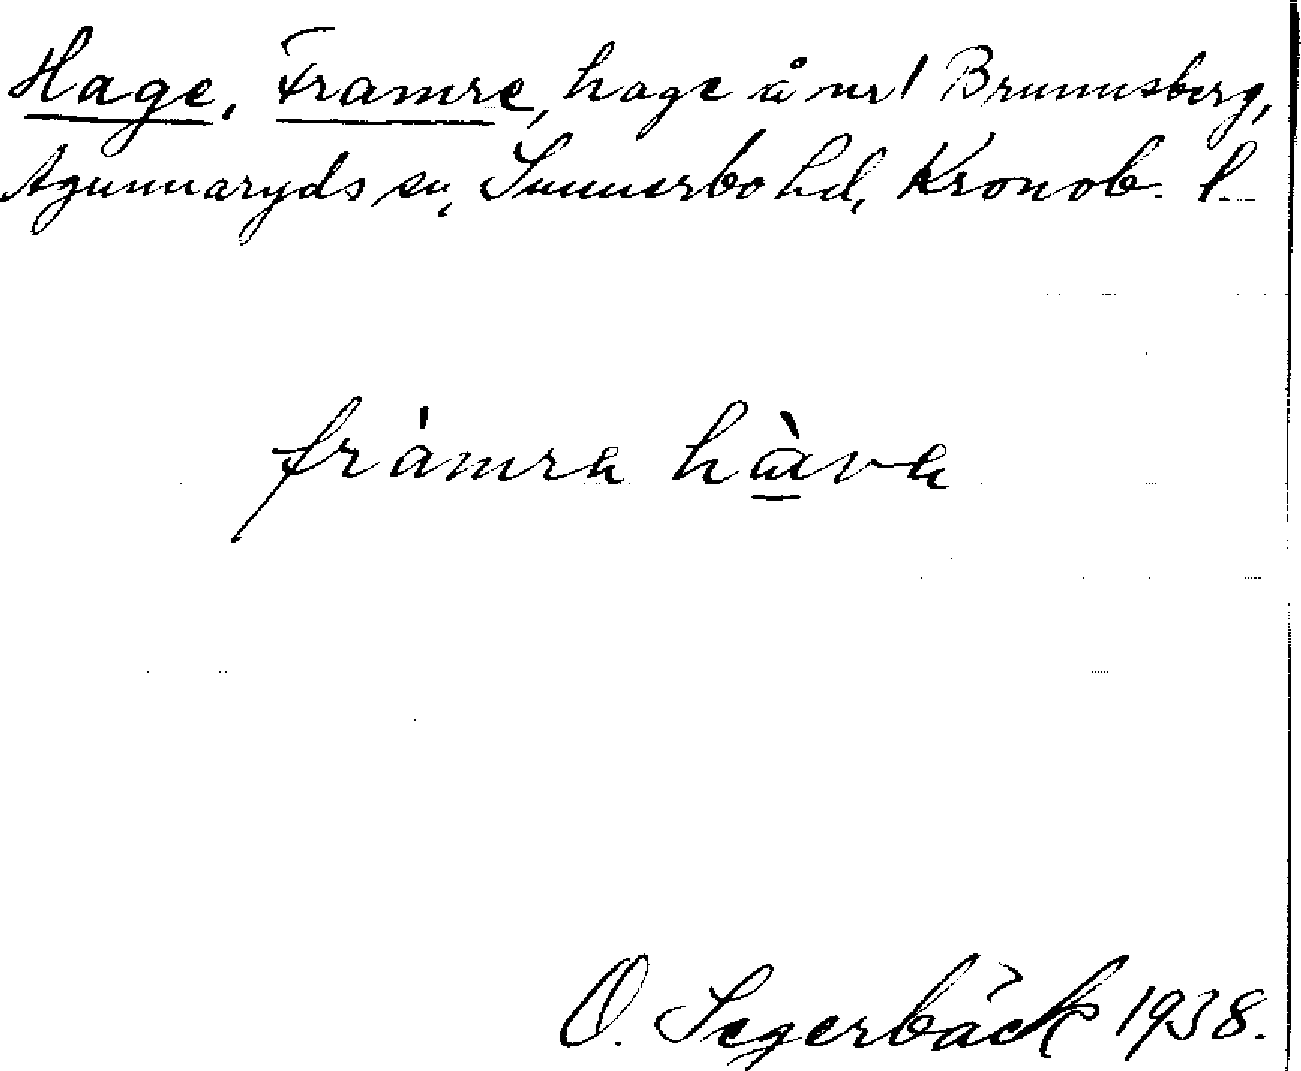 Hage, Framre, hage å nr 1 Brunnsberg,
Agunnaryds sn, Sunnerbo hd, Kronob. l.
fràmra hàva
O. Segerbäck 1938.